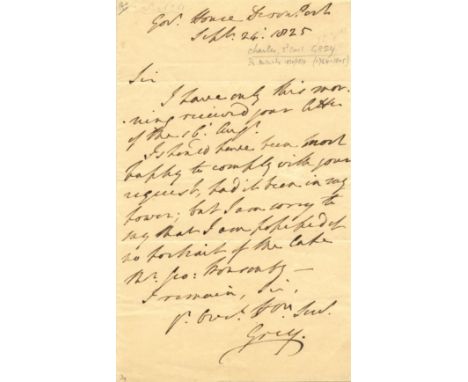 Govt. House Devonport
Septr. 24: 1825
Charles, 2nd Earl GREY
Sir
I have only this mor-
ning received your letter
of the 16: Augt.
I should have been most
happy to comply with your
request, had it been in my
power; but I am sorry to
say that I am possessed of
no portrait of the late
Mr. Geo: Ponsonby —
I remain, Sir,
yr. Obedt. Hon. Sert.
Grey.